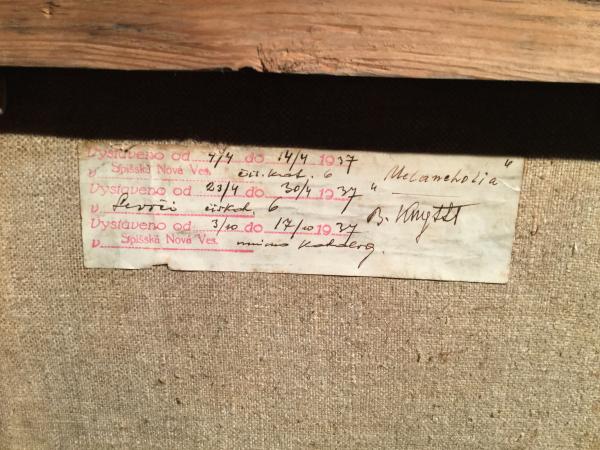 Vystaveno od 4/4 do 14/4 1937
v Spišská Nová Ves. 6
"Melancholia"
Vystaveno od 23/4 do 30/4 1937
v Levoči 6
B. Knytll
Vystaveno od 3/10 do 17/10 1937
v Spišská Nová Ves. mimo